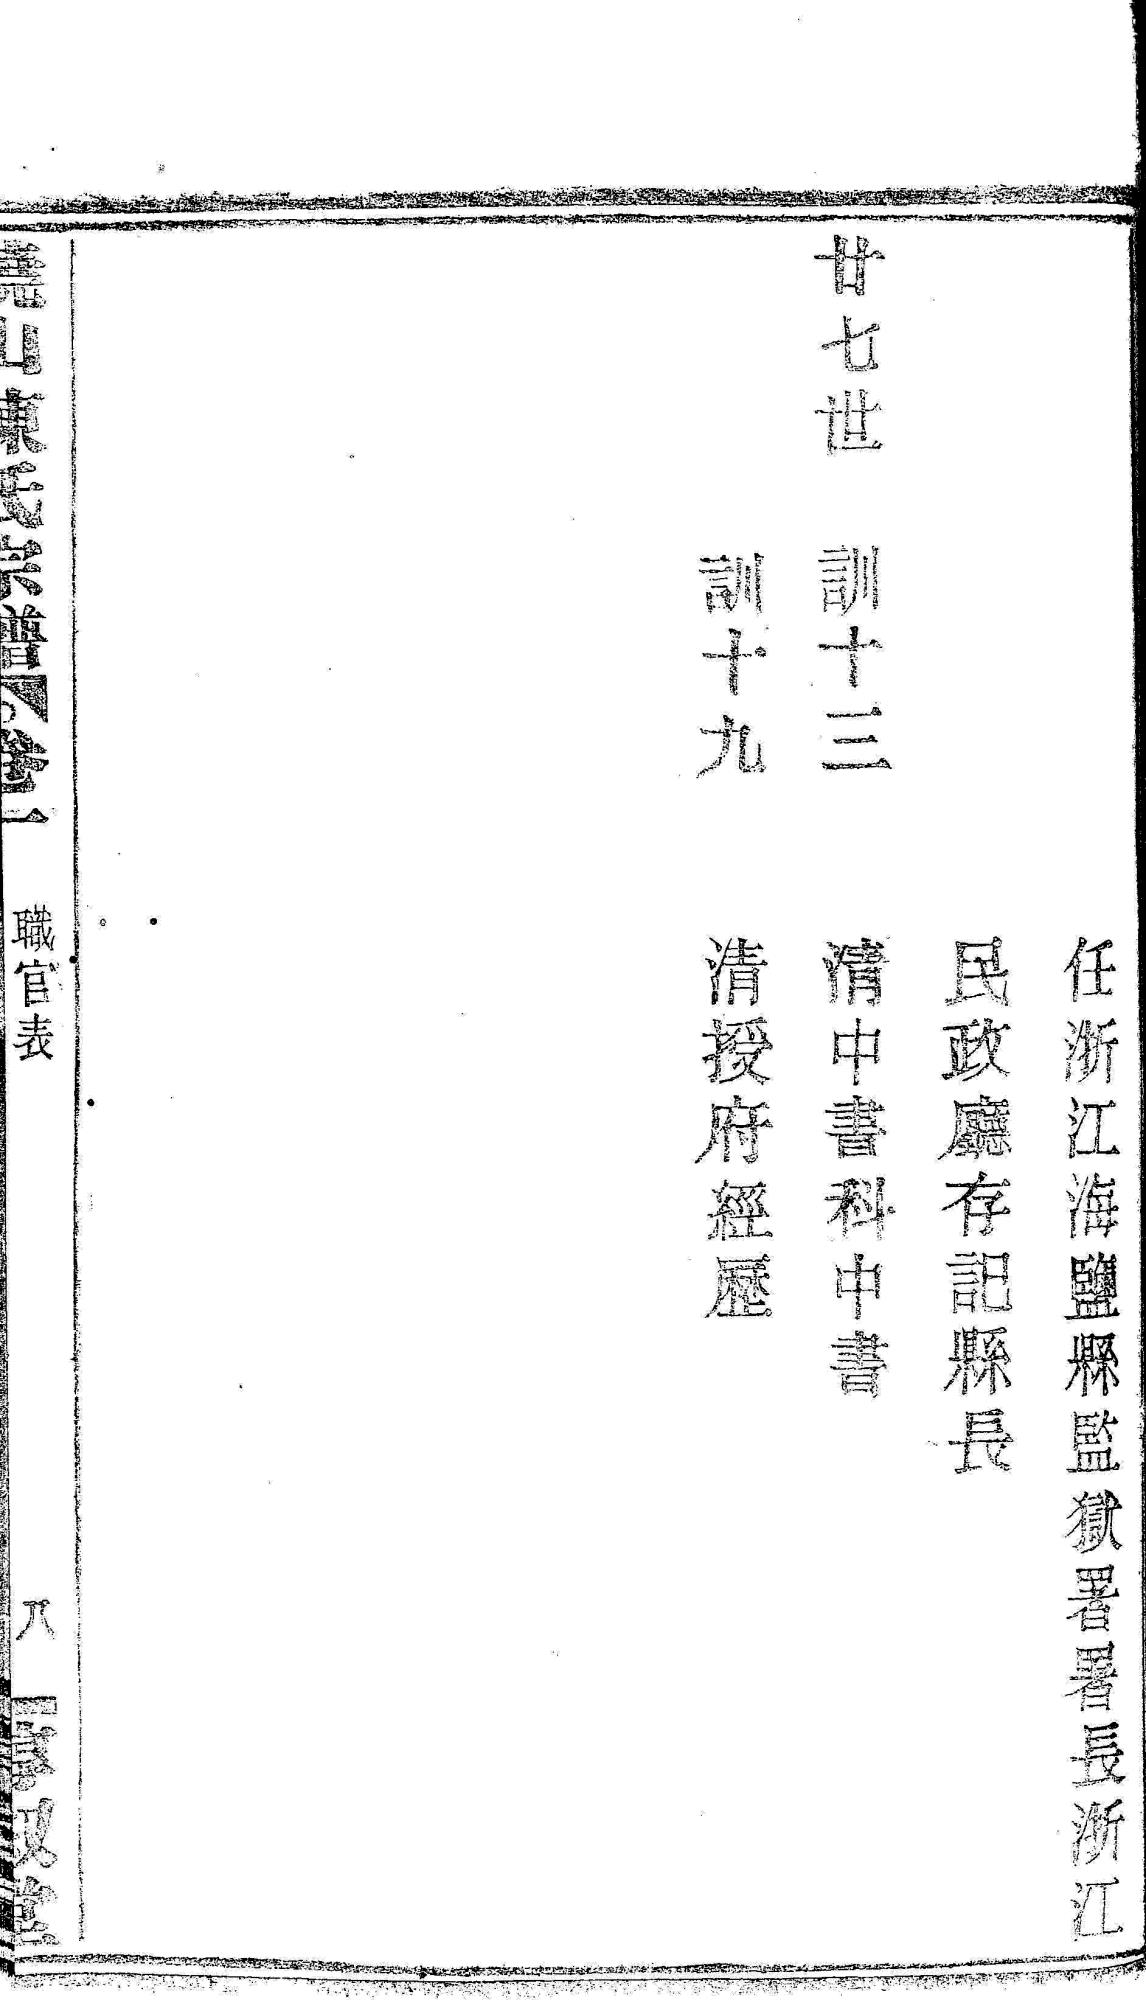 任浙江海鹽縣監獄署署長浙江
民政廳存記縣長
廿七世　訓十三　清中書科中書
訓十九　清授府經歷
山陳氏宗譜　卷一　職官表　八　堂